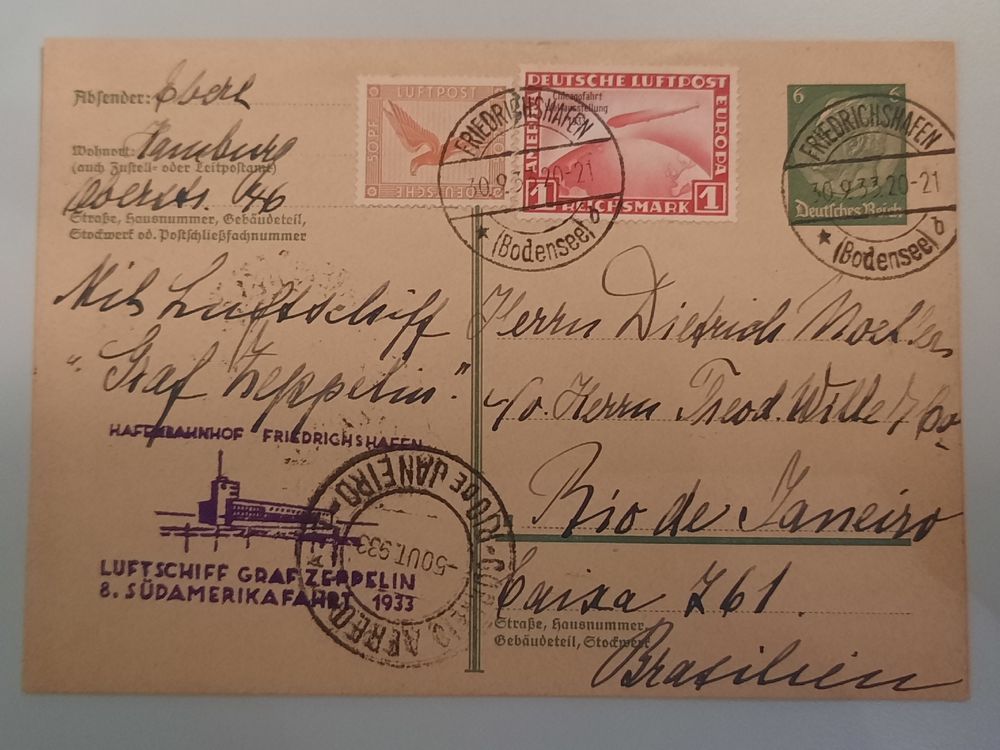 Absender: Eberl
Wohnort: Hamburg
(auch Zustell- oder Leitpostamt)
Oberstr.
Straße, Hausnummer, Gebäudeteil,
Stockwerk od. Postschließfachnummer
LUFTPOST
50 PF
DEUTSCHE
DEUTSCHE LUFTPOST
Chicagofahrt
Weltausstellung
AMERIKA
EUROPA
1 REICHSMARK 1
FRIEDRICHSHAFEN
30.9.33.20-21
(Bodensee) b
6 6
Deutsches Reich
FRIEDRICHSHAFEN
30.9.33.20-21
(Bodensee) b
Mit Luftschiff
"Graf Zeppelin".
HAFENBAHNHOF FRIEDRICHSHAFEN
LUFTSCHIFF GRAF ZEPPELIN
8. SÜDAMERIKAFAHRT 1933
RIO DE JANEIRO
-5 OUT. 933
AEREO
Herrn Dietrich Moeller
c/o. Herrn Theod. Wille & Co.
Rio de Janeiro
Caixa 761.
Straße, Hausnummer,
Gebäudeteil, Stockwerk
Brasilien